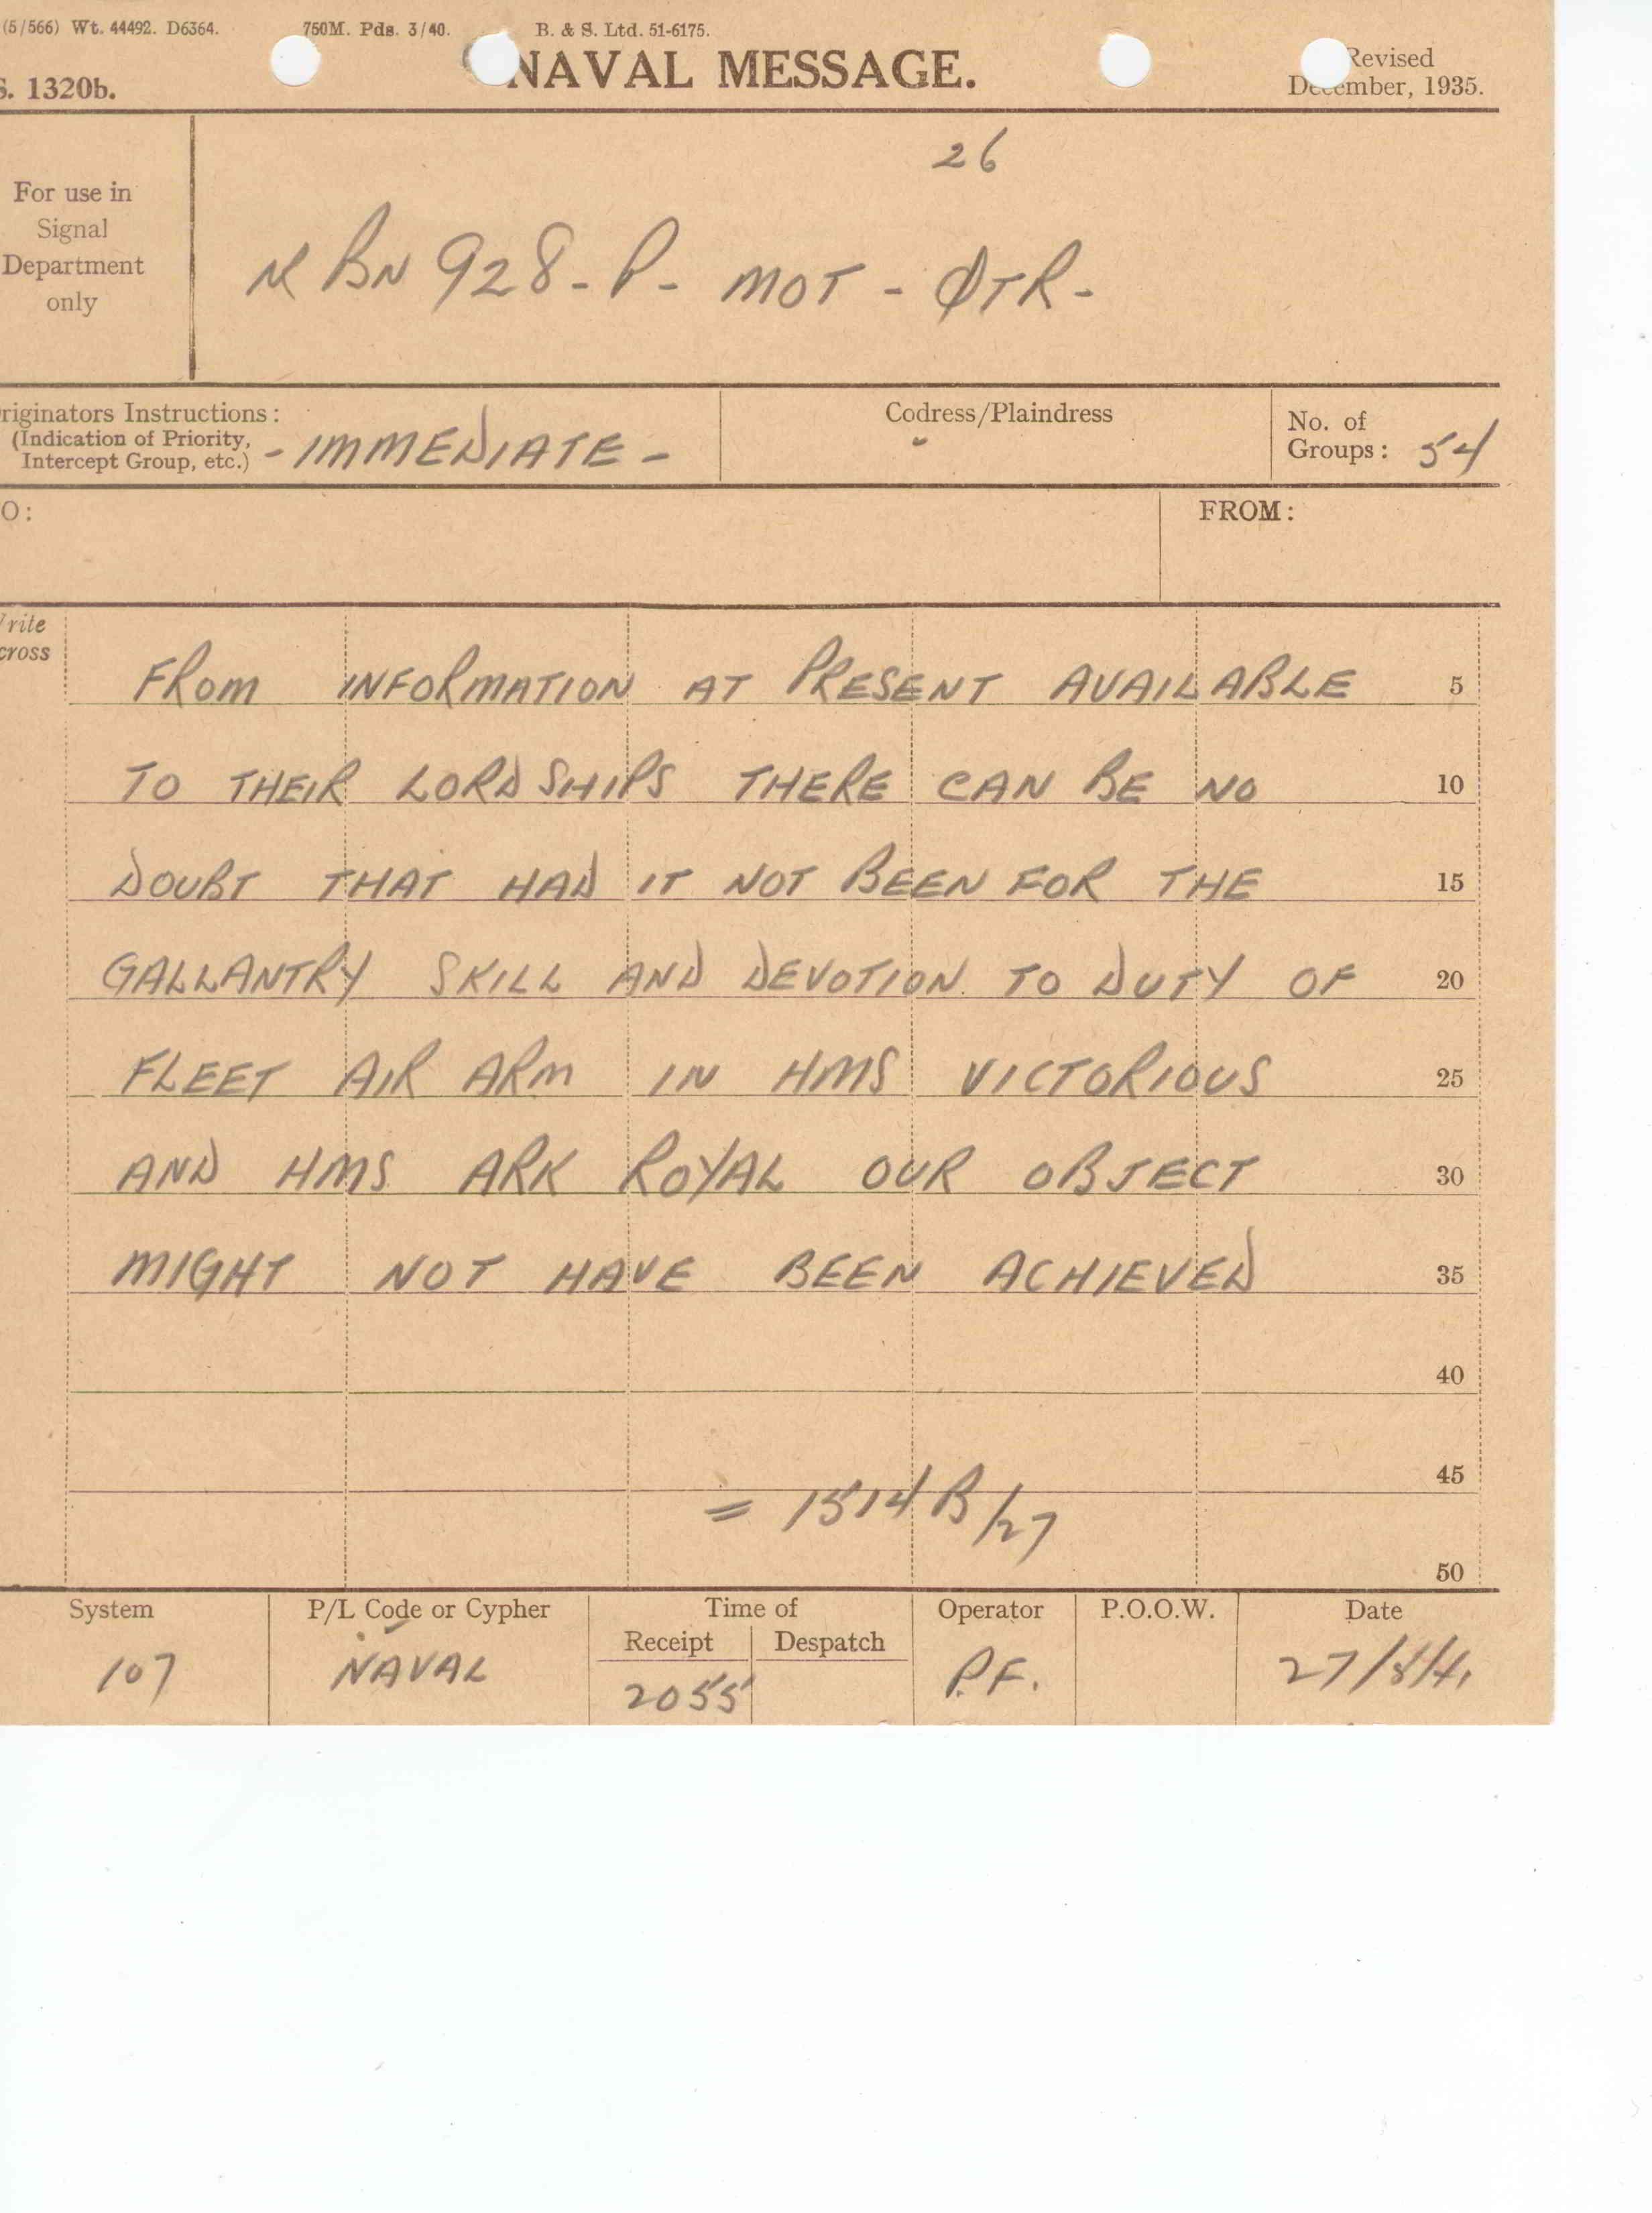 (5/566) Wt. 44492. D6364. 750M. Pds. 3/40. B. & S. Ltd. 51-6175.
S. 1320b. NAVAL MESSAGE. Revised
December, 1935.
26
For use in
Signal
Department
only
BN 928 - P - MOT - ØTR -
riginators Instructions:
(Indication of Priority,
Intercept Group, etc.) - IMMEDIATE -
Codress/Plaindress
No. of
Groups: 54
O: FROM:
rite
cross
FROM INFORMATION AT PRESENT AVAILABLE 5
TO THEIR LORDSHIPS THERE CAN BE NO 10
DOUBT THAT HAD IT NOT BEEN FOR THE 15
GALLANTRY SKILL AND DEVOTION TO DUTY OF 20
FLEET AIR ARM IN HMS VICTORIOUS 25
AND HMS ARK ROYAL OUR OBJECT 30
MIGHT NOT HAVE BEEN ACHIEVED 35
40
45
= 1514 B/27
50
System P/L Code or Cypher Time of Operator P.O.O.W. Date
Receipt Despatch
107 NAVAL 2055 P.F. 27/5/41